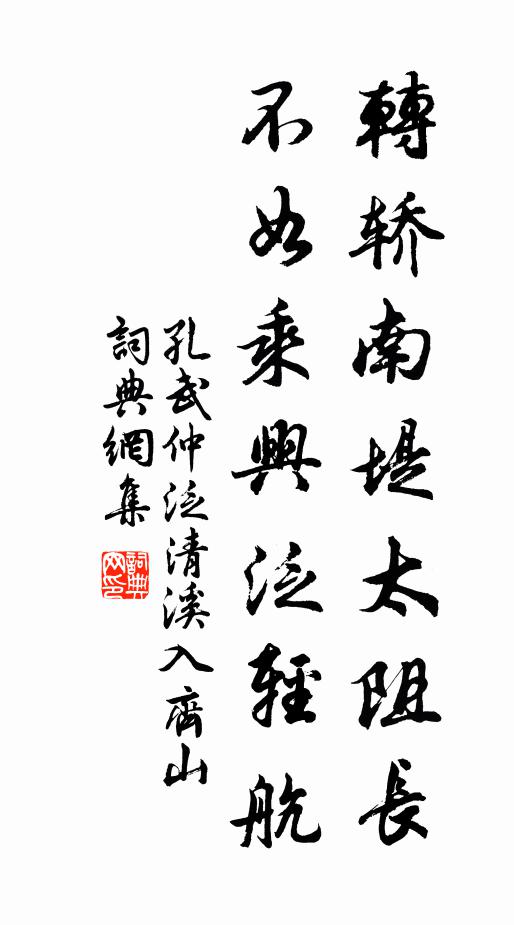 轉轿南堤太阻長
不如乘興泛輕航
孔武仲泛清溪入齊山
詞典網集
詞典網印